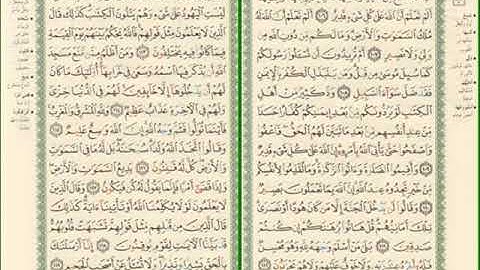 أَلَمْ تَعْلَمْ أَنَّ ٱللَّهَ عَلَىٰ كُلِّ شَىْءٍ قَدِيرٌ ١٠٦ أَلَمْ تَعْلَمْ أَنَّ ٱللَّهَ لَهُۥ
مُلْكُ ٱلسَّمَٰوَٰتِ وَٱلْأَرْضِ وَمَا لَكُم مِّن دُونِ ٱللَّهِ مِن
وَلِىٍّ وَلَا نَصِيرٍ ١٠٧ أَمْ تُرِيدُونَ أَن تَسْـَٔلُوا۟ رَسُولَكُمْ
كَمَا سُئِلَ مُوسَىٰ مِن قَبْلُ وَمَن يَتَبَدَّلِ ٱلْكُفْرَ بِٱلْإِيمَٰنِ
فَقَدْ ضَلَّ سَوَآءَ ٱلسَّبِيلِ ١٠٨ وَدَّ كَثِيرٌ مِّنْ أَهْلِ
ٱلْكِتَٰبِ لَوْ يَرُدُّونَكُم مِّنۢ بَعْدِ إِيمَٰنِكُمْ كُفَّارًا حَسَدًا
مِّنْ عِندِ أَنفُسِهِم مِّنۢ بَعْدِ مَا تَبَيَّنَ لَهُمُ ٱلْحَقُّ فَٱعْفُوا۟
وَٱصْفَحُوا۟ حَتَّىٰ يَأْتِىَ ٱللَّهُ بِأَمْرِهِۦٓ إِنَّ ٱللَّهَ عَلَىٰ كُلِّ شَىْءٍ قَدِيرٌ
١٠٩ وَأَقِيمُوا۟ ٱلصَّلَوٰةَ وَءَاتُوا۟ ٱلزَّكَوٰةَ وَمَا تُقَدِّمُوا۟ لِأَنفُسِكُم
مِّنْ خَيْرٍ تَجِدُوهُ عِندَ ٱللَّهِ إِنَّ ٱللَّهَ بِمَا تَعْمَلُونَ بَصِيرٌ
١١٠ وَقَالُوا۟ لَن يَدْخُلَ ٱلْجَنَّةَ إِلَّا مَن كَانَ هُودًا أَوْ نَصَٰرَىٰ
تِلْكَ أَمَانِيُّهُمْ قُلْ هَاتُوا۟ بُرْهَٰنَكُمْ إِن كُنتُمْ
صَٰدِقِينَ ١١١ بَلَىٰ مَنْ أَسْلَمَ وَجْهَهُۥ لِلَّهِ وَهُوَ مُحْسِنٌ
فَلَهُۥٓ أَجْرُهُۥ عِندَ رَبِّهِۦ وَلَا خَوْفٌ عَلَيْهِمْ وَلَا هُمْ يَحْزَنُونَ ١١٢
لَيْسَتِ ٱلْيَهُودُ عَلَىٰ شَىْءٍ وَهُمْ يَتْلُونَ ٱلْكِتَٰبَ كَذَٰلِكَ قَالَ
ٱلَّذِينَ لَا يَعْلَمُونَ مِثْلَ قَوْلِهِمْ فَٱللَّهُ يَحْكُمُ بَيْنَهُمْ يَوْمَ ٱلْقِيَٰمَةِ
فِيمَا كَانُوا۟ فِيهِ يَخْتَلِفُونَ ١١٣ وَمَنْ أَظْلَمُ مِمَّن مَّنَعَ مَسَٰجِدَ
ٱللَّهِ أَن يُذْكَرَ فِيهَا ٱسْمُهُۥ وَسَعَىٰ فِى خَرَابِهَآ أُو۟لَٰٓئِكَ مَا كَانَ
لَهُمْ أَن يَدْخُلُوهَآ إِلَّا خَآئِفِينَ لَهُمْ فِى ٱلدُّنْيَا خِزْىٌ
وَلَهُمْ فِى ٱلْـَٔاخِرَةِ عَذَابٌ عَظِيمٌ ١١٤ وَلِلَّهِ ٱلْمَشْرِقُ وَٱلْمَغْرِبُ
فَأَيْنَمَا تُوَلُّوا۟ فَثَمَّ وَجْهُ ٱللَّهِ إِنَّ ٱللَّهَ وَٰسِعٌ عَلِيمٌ ١١٥
وَقَالُوا۟ ٱتَّخَذَ ٱللَّهُ وَلَدًا سُبْحَٰنَهُۥ بَل لَّهُۥ مَا فِى ٱلسَّمَٰوَٰتِ
وَٱلْأَرْضِ كُلٌّ لَّهُۥ قَٰنِتُونَ ١١٦ بَدِيعُ ٱلسَّمَٰوَٰتِ وَٱلْأَرْضِ
وَإِذَا قَضَىٰٓ أَمْرًا فَإِنَّمَا يَقُولُ لَهُۥ كُن فَيَكُونُ ١١٧ وَقَالَ ٱلَّذِينَ
لَا يَعْلَمُونَ لَوْلَا يُكَلِّمُنَا ٱللَّهُ أَوْ تَأْتِينَآ ءَايَةٌ كَذَٰلِكَ
قَالَ ٱلَّذِينَ مِن قَبْلِهِم مِّثْلَ قَوْلِهِمْ تَشَٰبَهَتْ قُلُوبُهُمْ
قَدْ بَيَّنَّا ٱلْـَٔايَٰتِ لِقَوْمٍ يُوقِنُونَ ١١٨ إِنَّآ أَرْسَلْنَٰكَ
بِٱلْحَقِّ بَشِيرًا وَنَذِيرًا وَلَا تُسْـَٔلُ عَنْ أَصْحَٰبِ ٱلْجَحِيمِ ١١٩